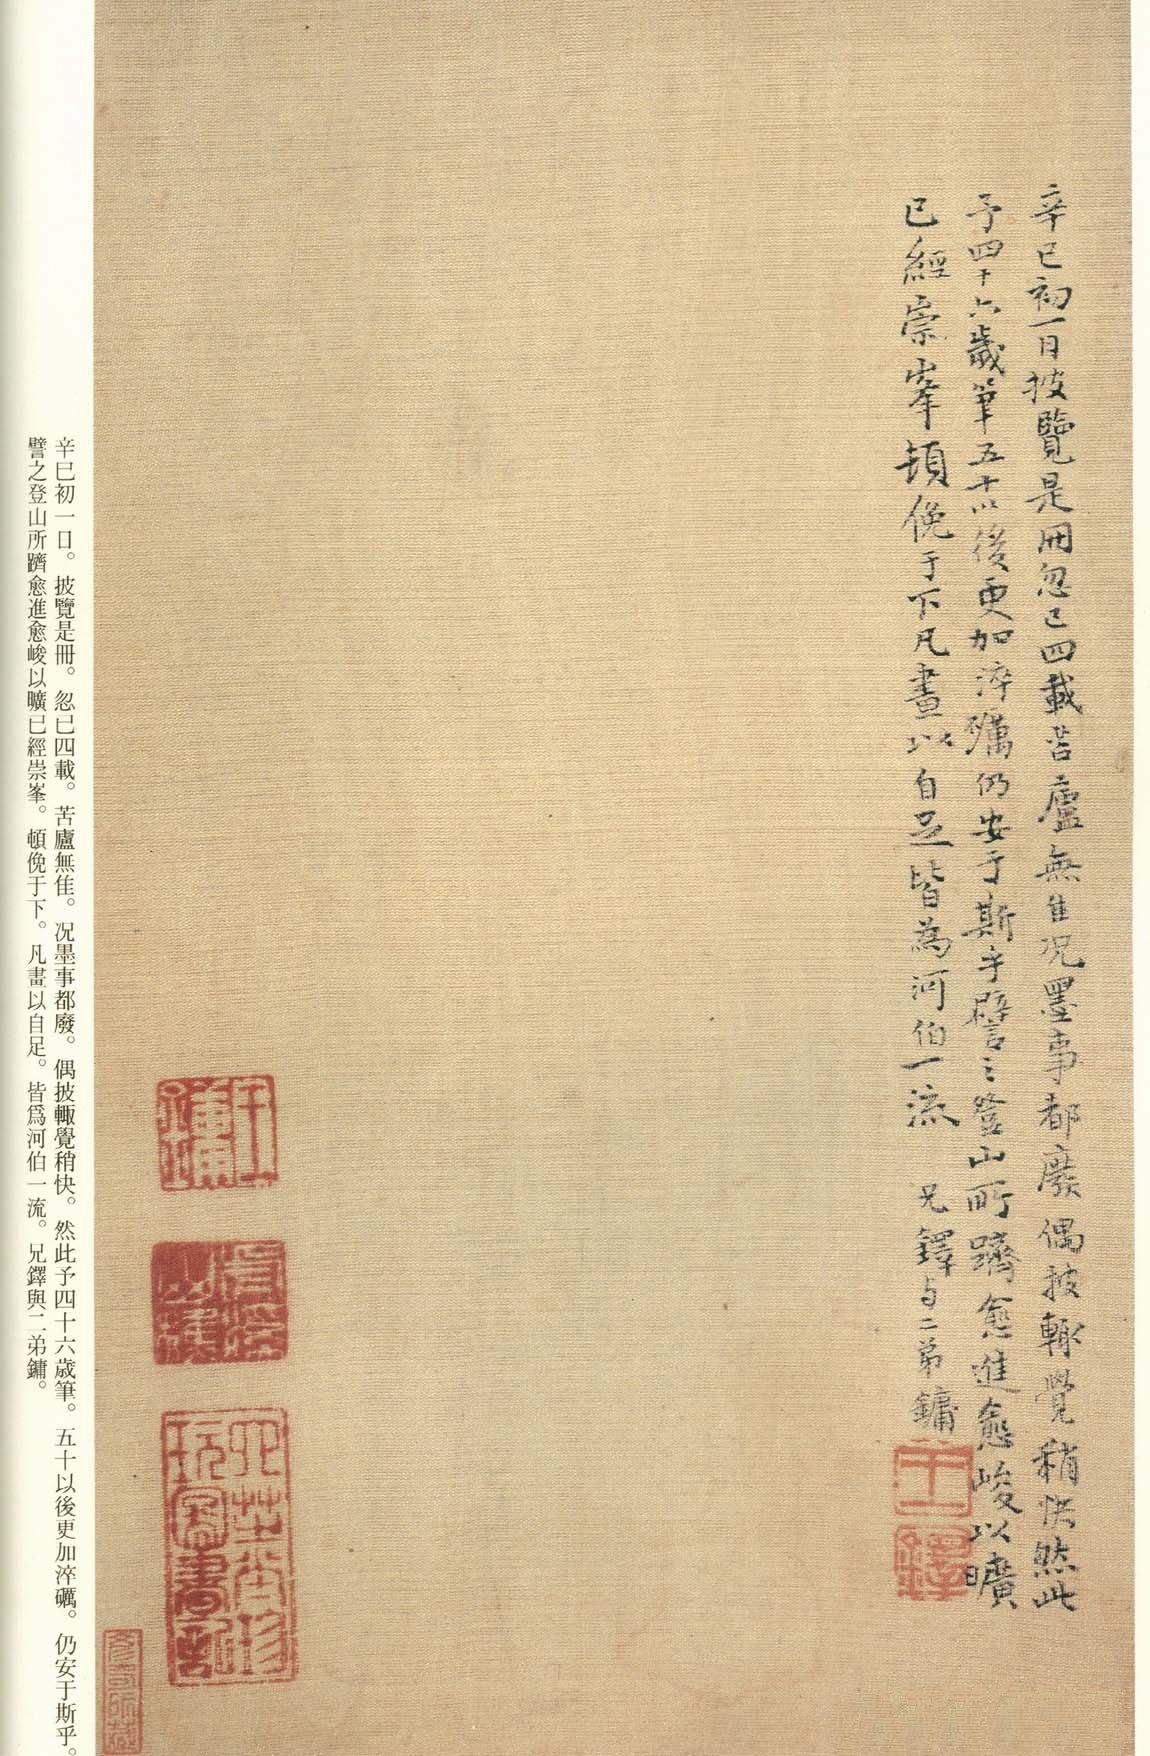 辛巳初一日披覽是冊忽已四載苫廬無佳况墨事都廢偶披輙覺稍快然此
予四十六歲筆五十以後更加淬礪仍安于斯乎譬之登山所躋愈進愈峻以曠
已經崇峯頓俛于下凡畫以自足皆為河伯一流 兄鐸与二弟鏞
王鐸
王鏞
辛巳初一日。披覽是冊。忽已四載。苦廬無佳。况墨事都廢。偶披輙覺稍快。然此予四十六歲筆。五十以後更加淬礪。仍安于斯乎。
譬之登山所躋愈進愈峻以曠已經崇峯。頓俛于下。凡畫以自足。皆爲河伯一流。兄鐸與二弟鏞。